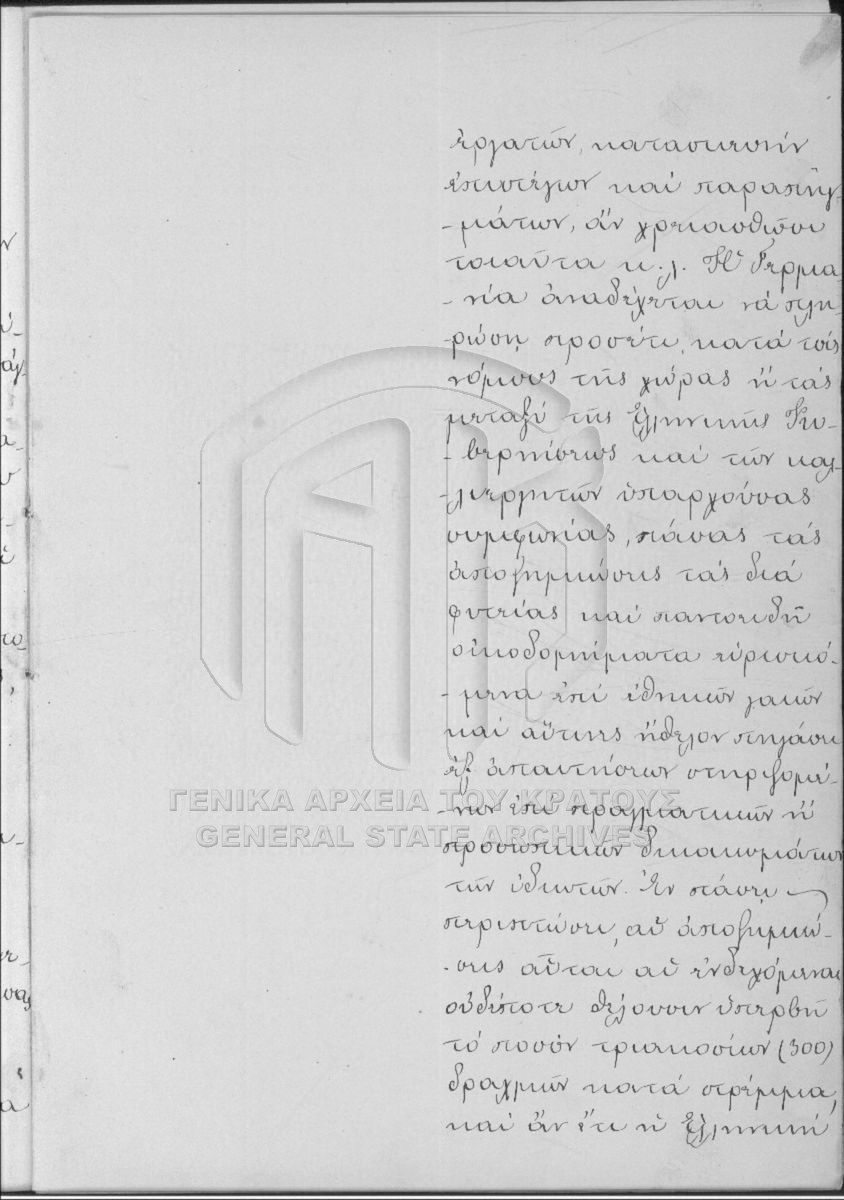 ἐργατῶν, κατασκευήν
ἐπιστέγων καί παραπηγ-
-μάτων, ἄν χρειασθῶσι
τοιαῦτα κ.λ. Ἡ Γερμα-
-νία ἀναδέχεται νά πλη-
-ρώσῃ προσέτι, κατά τούς
νόμους τῆς χώρας ἤ τάς
μεταξύ τῆς Ἑλληνικῆς Κυ-
-βερνήσεως καί τῶν καλ-
-λιεργητῶν ὑπαρχούσας
συμφωνίας, πάσας τάς
ἀποζημιώσεις τάς διά
φυτείας καί παντοειδῆ
οἰκοδομήματα εὑρισκό-
-μενα ἐπί ἐθνικῶν γαιῶν
καί αὕτινες ἤθελον πηγάσει
ἐξ ἀπαιτήσεων στηριζομέ-
-νων ἐπί πραγματικῶν ἤ
προσωπικῶν δικαιωμάτων
τῶν ἰδιωτῶν. Ἐν πάσῃ
περιπτώσει, αἱ ἀποζημιώ-
-σεις αὗται αἱ ἐνδεχόμεναι
οὐδέποτε θέλουσιν ὑπερβῆ
τό ποσόν τριακοσίων (300)
δραχμῶν κατά στρέμμα,
καί ἄν ἔτι ἡ Ἑλληνική
ΓΕΝΙΚΑ ΑΡΧΕΙΑ ΤΟΥ ΚΡΑΤΟΥΣ
GENERAL STATE ARCHIVES